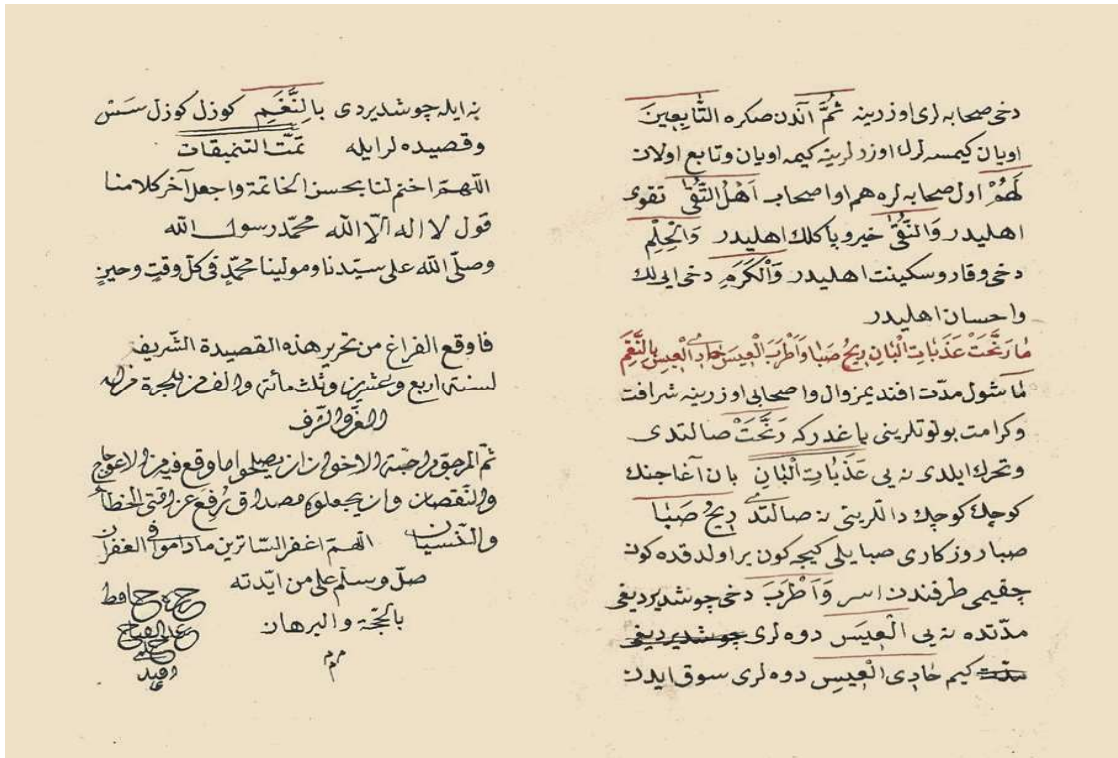 دخى صحابه لرى اوزرينه ثُمَّ آندن صكره التَّابِعِينَ
اويان كيمسه لرك اوزرلرينه كيمه اويان وتابع اولان
لَهُمْ اول صحابه لره هم اواصحاب اَهْلُ التُّقٰى تقوى
اهليدر وَالنَّقٰى خير و پاكلك اهليدر وَالْحِلْمِ
دخى وقار وسكينت اهليدر وَالْكَرَمِ دخى ايى لك
واحسان اهليدر
مٰا رَنَّحَتْ عَذَبٰاتِ الْبٰانِ رِيحُ صَبٰا وَاَطْرَبَ الْعِيسَ حٰادِى الْعِيسِ بِالنَّغَمِ
مٰا شول مدّت افنديمز وال واصحابى اوزرينه شرافت
وكرامت بولوتلرينى ياغدركه رَنَّحَتْ صالتدى
وتحرك ايلدى نه يى عَذَبٰاتِ الْبٰانِ بان آغاجنك
كوچك كوچك داللرينى نه صالتدى رِيحُ صَبٰا
صبا روزكارى صبا يلى كيجه كون براولدقده كون
چقيمى طرفندن اسر وَاَطْرَبَ دخى چوشديرديغى
مدّتده نه يى الْعِيسَ دوه لرى چوشديرديغى
مدّت كيم حٰادِى الْعِيسِ دوه لرى سوق ايدن
نه ايله چوشديردى بِالنَّغَمِ كوزل كوزل سس
وقصيده لر ايله تمّت التنميقات
اللّهمّ اختم لنا بحسن الخاتمة واجعل آخر كلامنا
قول لا اله الّا الله محمّد رسول الله
وصلّى الله على سيّدنا ومولينا محمّد فى كلّ وقتٍ وحينٍ
فاوقع الفراغ من تحرير هذه القصيدة الشّريف
لسنة اربع وعشرين وثلث مائة والف من الهجرة من له
العزّ والشّرف
ثمّ المرجوّ من احبّة الاخوان ان يصلحوا ما وقع فيه من الاعوجاج
والنّقصان وان يجعلوه مصداق رُفِعَ عن امّتى الخطأ
والنّسيان اللّهمّ اغفر السّاترين ماداموا فى الغفران
صلّ وسلّم على من ايّدته
بالحجّة والبرهان
م م م
حافظ
افندى